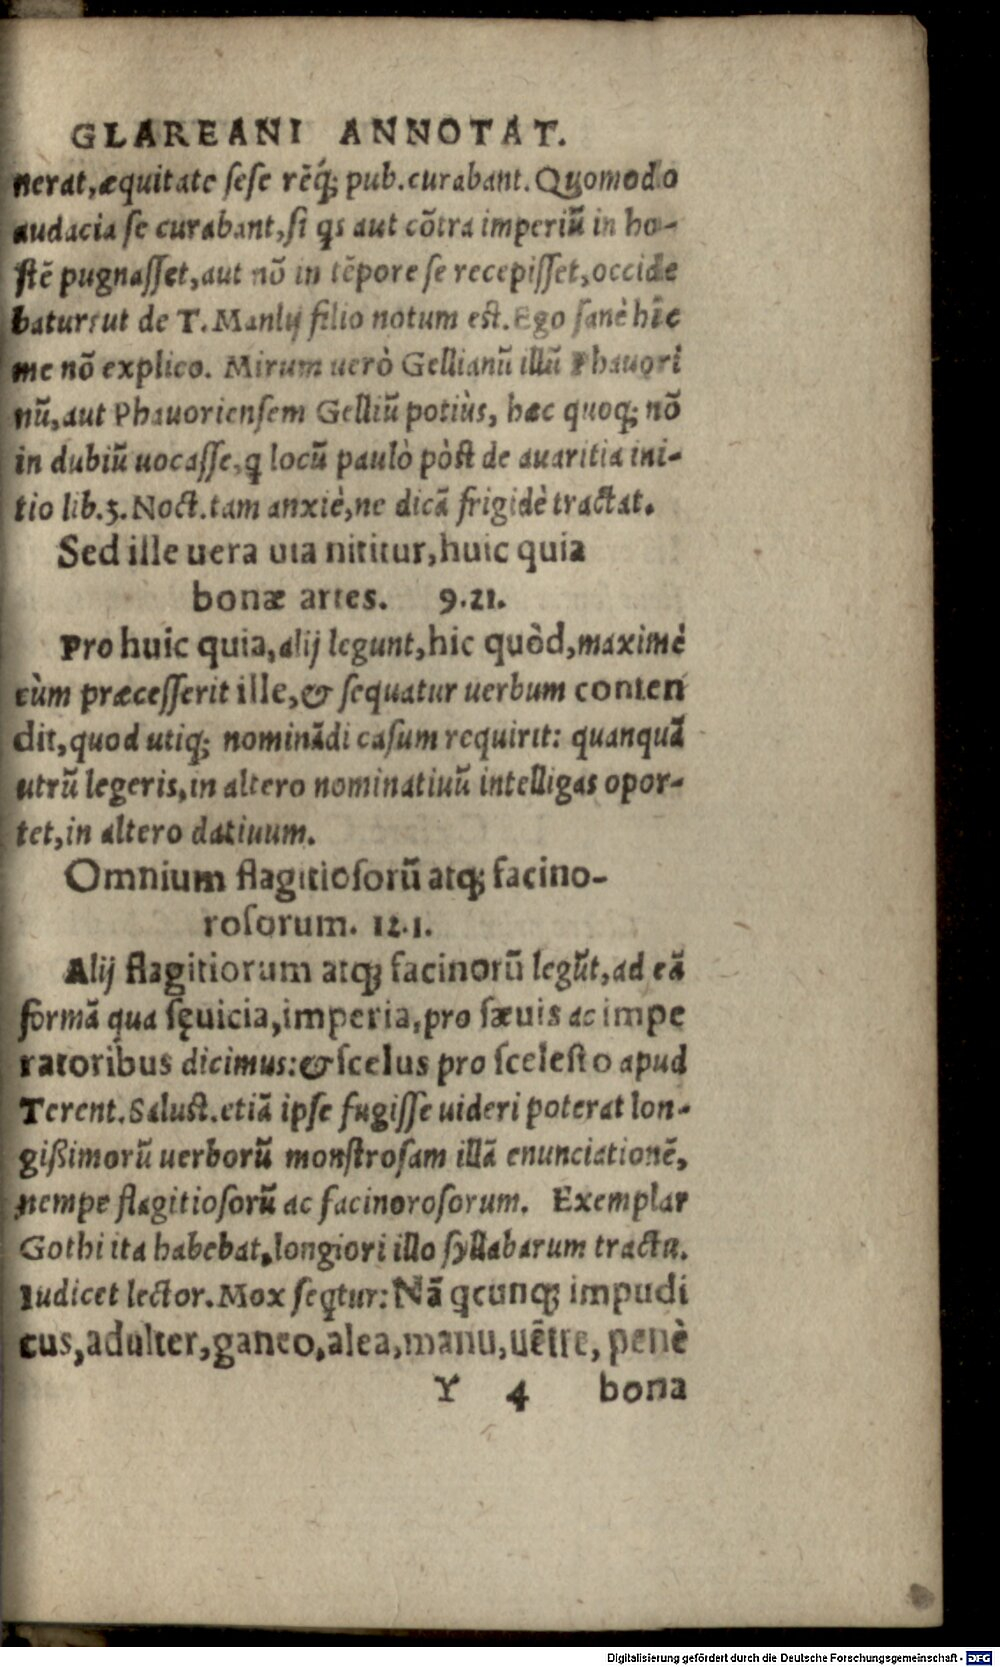 GLAREANI ANNOTAT.
nerat, æquitate ſeſe rẽq́; pub. curabant. Quomodo
audacia ſe curabant, ſi qs aut cõtra imperiũ in ho-
ſtẽ pugnaſſet, aut nõ in tẽpore ſe recepiſſet, occide
batur: ut de T. Manlij filio notum eſt. Ego ſanè hîc
me nõ explico. Mirum uerò Gellianũ illũ Phauori
nũ, aut Phauorienſem Gelliũ potiùs, hæc quoq; nõ
in dubiũ uocaſſe, q locũ paulò pòſt de auaritia ini-
tio lib. 3. Noct. tam anxiè, ne dicã frigidè tractat.
Sed ille uera uia nititur, huic quia
bonæ artes. 9.21.
Pro huic quia, alij legunt, hic quòd, maximè
cùm præceſſerit ille, & ſequatur uerbum conten
dit, quod utiq; nominãdi caſum requirit: quanquã
utrũ legeris, in altero nominatiuũ intelligas opor-
tet, in altero datiuum.
Omnium flagitioſorũ atq; facino-
roſorum. 12.1.
Alij flagitiorum atq; facinorũ legũt, ad eã
formã qua ſęuicia, imperia, pro ſæuis ac impe
ratoribus dicimus: & ſcelus pro ſceleſto apud
Terent. Saluſt. etiã ipſe fugiſſe uideri poterat lon-
gißimorũ uerborũ monſtroſam illã enunciationẽ,
nempe flagitioſorũ ac facinoroſorum. Exemplar
Gothi ita habebat, longiori illo ſyllabarum tractu.
Iudicet lector. Mox ſeqtur: Nã qcunq; impudi
cus, adulter, ganeo, alea, manu, uẽtre, penè
Y 4 bona
Digitalisierung gefördert durch die Deutsche Forschungsgemeinschaft - DFG